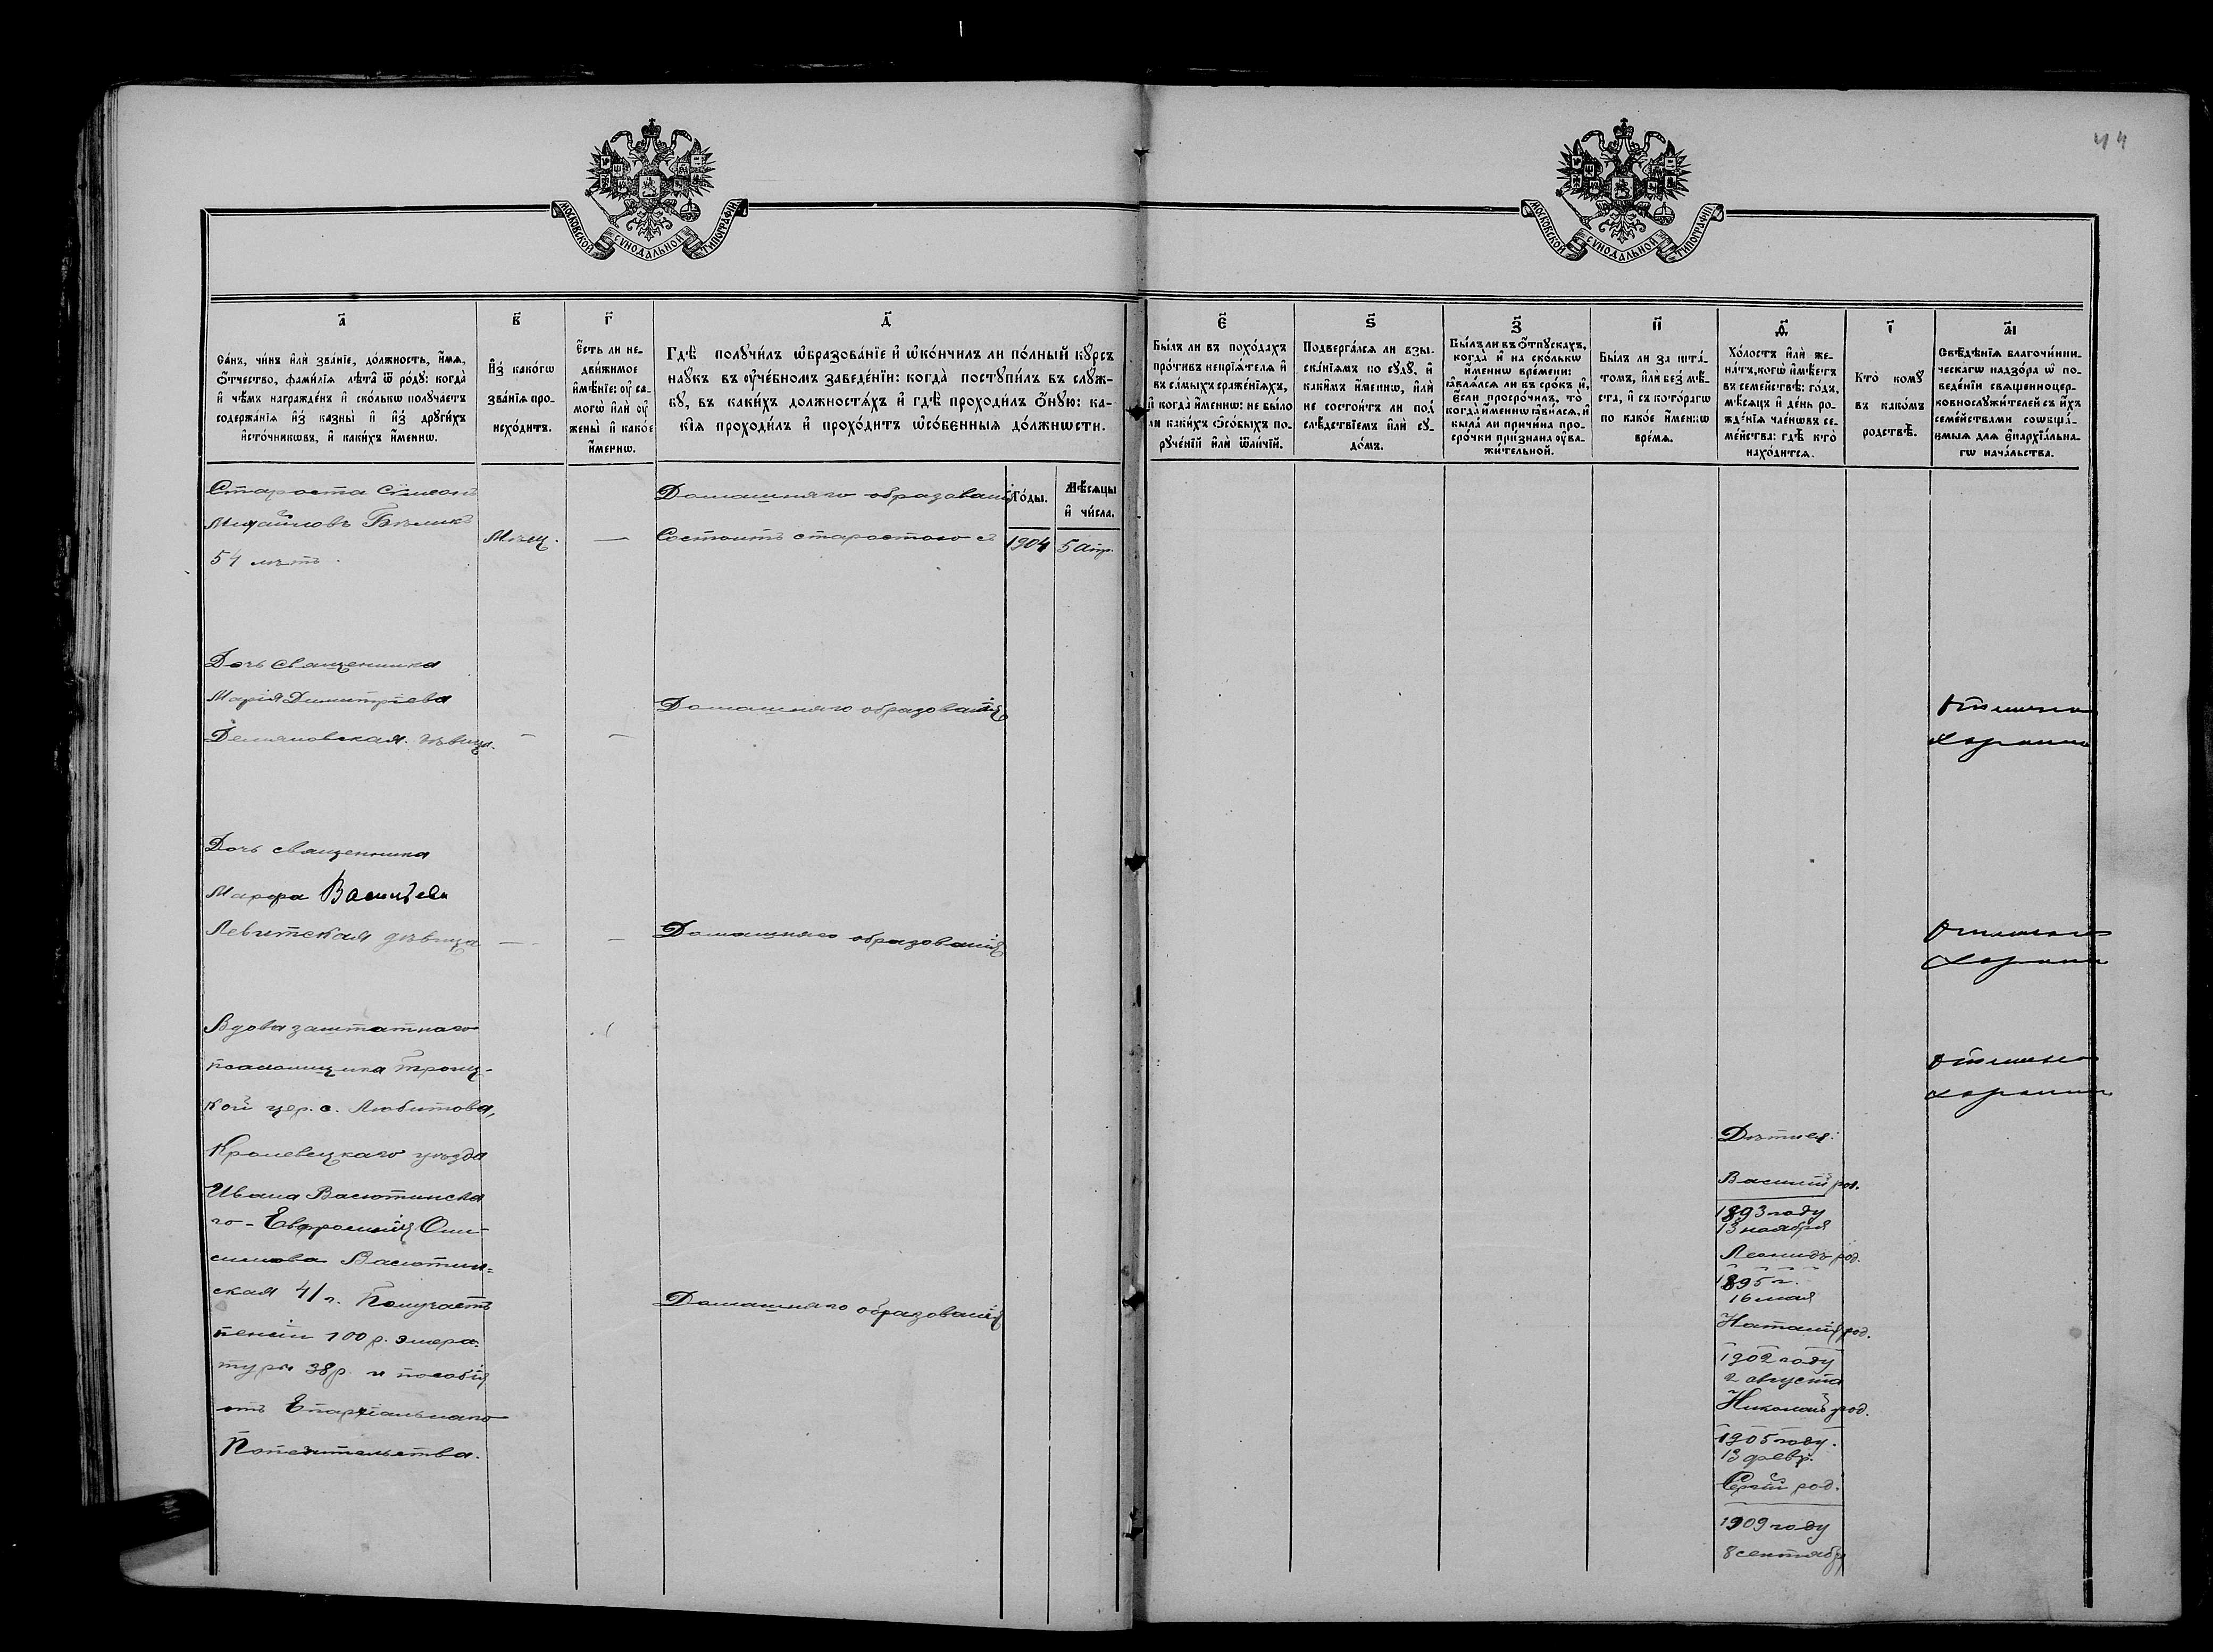 44
МОСКОВСКОЙ СѴНОДАЛЬНОЙ ТИПОГРАФІИ
МОСКОВСКОЙ СѴНОДАЛЬНОЙ ТИПОГРАФІИ
а҃
Са́нъ, чи́нъ и҆лѝ зва́нїе, до́лжность, и҆́мѧ,
ѻ҆́тчество, фами́лїѧ лѣ́та ѿ ро́дꙋ: когда̀
и҆ чѣ́мъ награжде́нъ и҆ ско́лькѡ полꙋча́етъ
содержа́нїѧ и҆з̾ казны̀ и҆ и҆з̾ дрꙋги́хъ
и҆сто́чникѡвъ, и҆ каки́хъ и҆́меннѡ.
в҃
И҆з̾ како́гѡ
зва́нїѧ про-
исхо́дитъ.
г҃
Є҆́сть ли не-
дви́жимое
и҆мѣ́нїе: ᲂу҆ са-
могѡ̀ и҆лѝ ᲂу҆
жены̀ и҆ како́е
и҆́меннѡ.
д҃
Гдѣ̀ полꙋчи́лъ ѡ҆бразова́нїе и҆ ѡ҆ко́нчилъ ли по́лный кꙋ́рсъ
наꙋ́къ въ ᲂу҆че́бномъ заведе́нїи: когда̀ постꙋпи́лъ въ слꙋ́ж-
бꙋ, въ каки́хъ должностѧ́хъ и҆ гдѣ̀ проходи́лъ ѻ҆́нꙋю: ка-
кі́ѧ проходи́лъ и҆ прохо́дитъ ѡ҆со́бенныѧ до́лжнѡсти.
є҃
Бы́лъ ли въ похо́дахъ
про́тивъ непрїѧ́телѧ и҆
въ са́мыхъ сраже́нїѧхъ,
и҆ когда̀ и҆́меннѡ: не бы́ло
ли каки́хъ ѻ҆со́быхъ по-
рꙋче́нїй и҆лѝ ѿли́чїй.
ѕ҃
Подверга́лсѧ ли взы-
ска́нїѧмъ по сꙋдꙋ̀, и҆
каки̑мъ и҆́меннѡ, и҆лѝ
не состои́тъ ли под̾
слѣ́дствїемъ и҆лѝ сꙋ-
до́мъ.
з҃
Бы́лъ ли въ ѻ҆́тпꙋскахъ,
когда̀ и҆ на ско́лькѡ
и҆́меннѡ вре́мени:
ꙗ҆влѧ́лсѧ ли въ сро́къ и҆,
є҆́сли просро́чилъ, то̀
когда̀ и҆́меннѡ ꙗ҆ви́лсѧ, и҆
была̀ ли причи́на про-
сро́чки при́знана ᲂу҆ва-
жи́тельной.
и҃
Бы́лъ ли за шта́-
томъ, и҆лѝ без̾ мѣ́-
ста, и҆ съ кото́рагѡ
по како́е и҆́меннѡ
вре́мѧ.
ѳ҃
Хо́лостъ и҆лѝ же-
на́тъ, когѡ̀ и҆мѣ́етъ
въ семе́йствѣ: го́дъ,
мѣ́сѧцъ и҆ де́нь ро-
жде́нїѧ чле́нѡвъ се-
ме́йства: гдѣ̀ кто̀
нахо́дитсѧ.
і҃
Кто̀ комꙋ̀
въ како́мъ
родствѣ̀.
аі҃
Свѣ́дѣнїѧ благочи́нни-
ческагѡ надзо́ра ѡ҆ по-
веде́нїи свѧщенноцер-
ковнослꙋжи́телей съ и҆́хъ
семе́йствами соѡбща́-
ємыѧ длѧ є҆парха́льна-
гѡ нача́льства.
Го́ды.
Мѣ́сѧцы
и҆ чи́сла.
Староста Сѵмеонъ
Михайловъ Бѣликъ
54 лѣтъ.
Мѣщ.
—
Домашняго образованія
Состоитъ старостою съ
1904
5 апр.
Дочь священника
Марія Димитріева
Демяновская. дѣвица.
—
—
Домашняго образованія
отлично
хорошаго
Дочь священника
Марфа Васильева
Левитская дѣвица
—
—
Домашняго образованія
Вдова заштатнаго
псаломщика Троиц-
кой цер. с. Любитова,
Кролевецкаго уѣзда
Ивана Васютинска
го - Евфросинія Они-
симова Васютин=
ская 41 г. Получаетъ
пенсіи 100 р. эмера-
туры 38 р. и пособія
отъ Епархіальнаго
Попечительства.
Домашняго образованія
Дѣти ея:
Василій род.
1893 году
13 ноября
Леонидъ род.
1895 г.
16 мая
Наталія род.
1902 году
2 августа
Николай род.
1905 году.
13 февр.
Сергій род.
1909 году
8 сентября